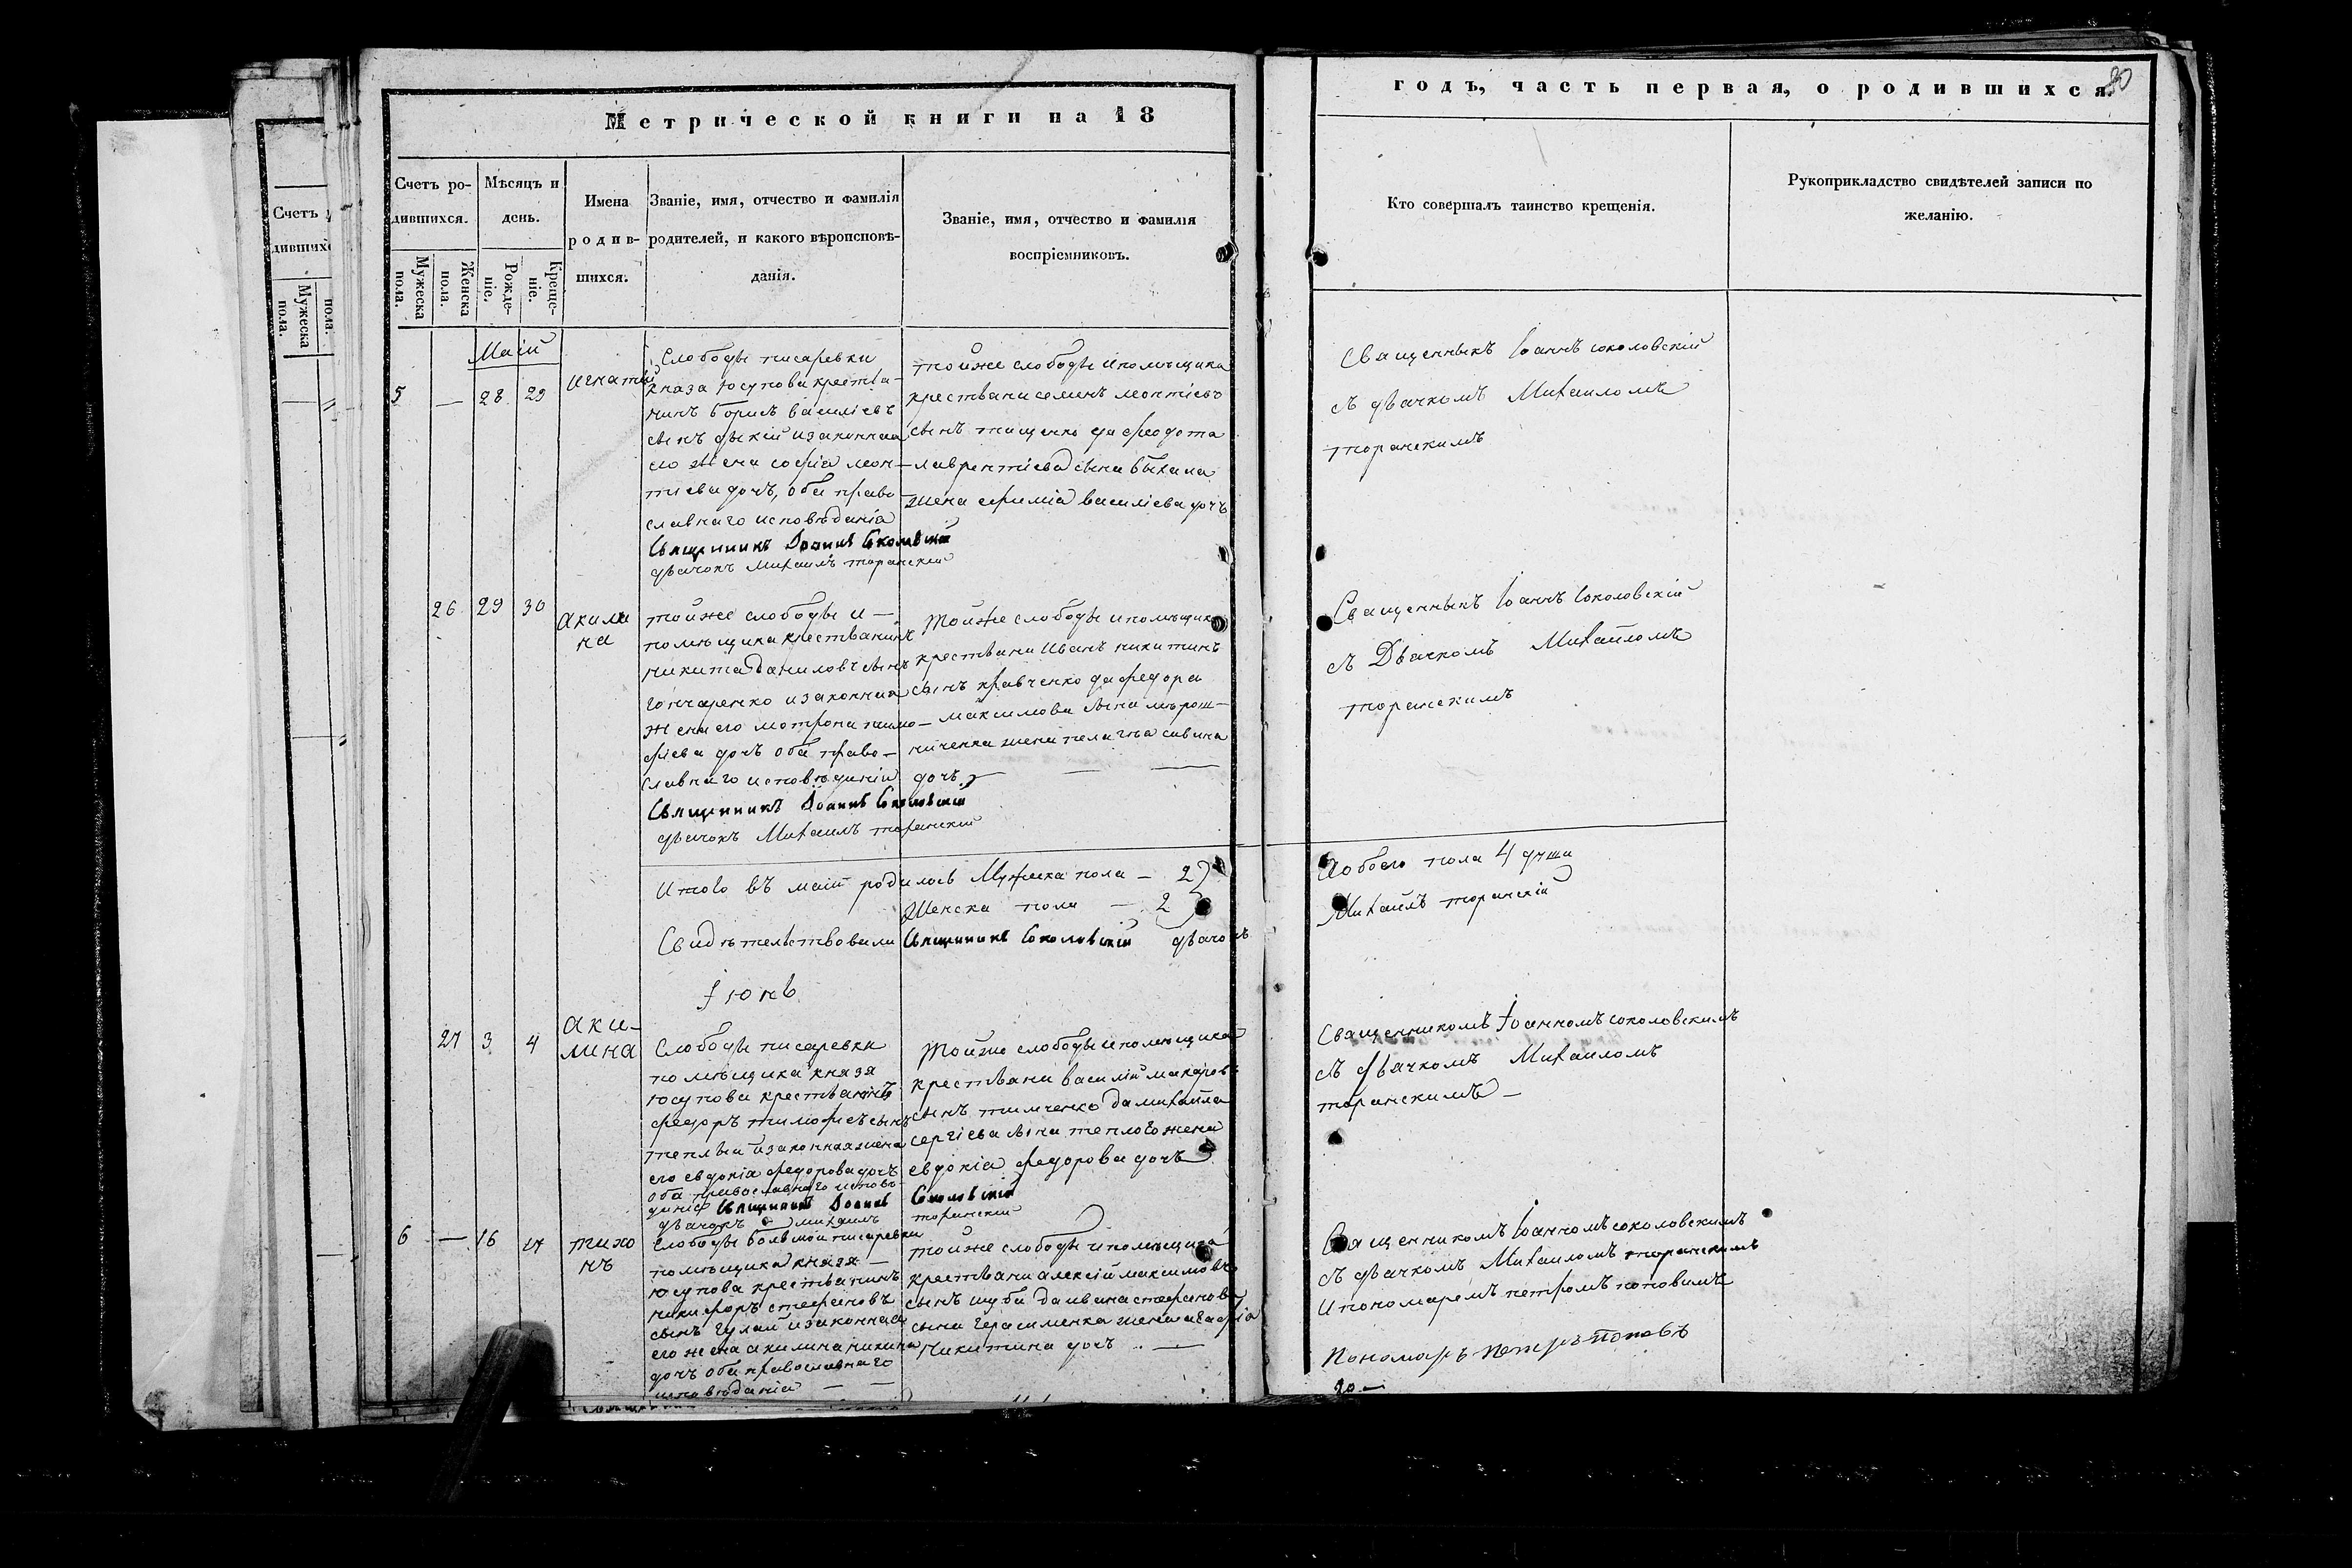 Метрической книги на 18
годъ, часть первая, о родившихся.
80
Счетъ ро-
дившихся.
Мѣсяцъ и
день.
Имена
родив-
шихся.
Званіе, имя, отчество и фамилія
родителей, и какого вѣроисповѣ-
данія.
Званіе, имя, отчество и фамилія
воспріемниковъ.
Кто совершалъ таинство крещенія.
Рукоприкладство свидѣтелей записи по
желанію.
Мужеска
пола.
Женска
пола.
Рожде-
ніе.
Креще-
ніе.
Счетъ
дившихс
Мужеска
пола.
пола.
Маій
5 — 28 29
Игнатій
Слободы писаревки
княза Юсупова крестіа-
нинъ борисъ василіевъ
сынъ дикій изаконная
его жена софіа леон-
тиева дочь, оба право-
славнаго исповѣданіа
Священникъ Іоаннъ Соколовскій
дьячокъ Михаилъ торанскій
тойже слободы ипомѣщика
крестьани семенъ леонтіевъ
сынъ тищенко да федота
лаврентіева сына быкала
жена ефиміа василіева дочь
Священникъ Іоаннъ соколовскій
съ дьячкомъ Михаиломъ
торанскимъ
26 29 30
Акили
на
тойже слободы и —
помѣщика крестьанинъ
никита даниловъ сынъ
гончаренко изаконная
жена его мотрона тимо-
фіева дочь оба право-
славнаго исповѣданіа
Священникъ Іоаннъ Соколовскій
дьячокъ Михаилъ торанскій
Тойже слободы ипомѣщика
крестьани Иванъ никитинъ
сынъ кравченко да федора
максимова сына мѣрош-
ниченка жена пелагѣа савина
дочь — —
Священникъ Іоаннъ Соколовскій
съ Дьячкомъ Михаиломъ
торанскимъ
Итого въ маіи родилось Мужеска пола — 2
Женска пола — 2
Свидѣтелствовали Священникъ Соколовскій дьячокъ
Иобоего пола 4 души
Михаилъ торанскій
Іюнь
27 3 4
Аки-
лина
Слободы писаревки
помѣщика князя
Юсупова крестьанинъ
федоръ тимофѣевъ сынъ
теплый изаконная жена
его евдокіа федорова дочь
оба православнаго исповѣ-
даніа Священникъ Іоаннъ Соколовскій
дьячокъ Михаилъ торанскій
Тойже слободы ипомѣщика
крестьани василій макаровъ
сынъ тимченко да михайла
сергіева сына теплого жена
евдокіа федорова дочь
Священникомъ Іоанномъ соколовскимъ
съ дьячкомъ Михаиломъ
торанскимъ —
6 — 16 17
тихо
нъ
Слободы болшой писаревки
помѣщика князя —
Юсупова крестьанинъ
никифоръ стефановъ
сынъ гулай изаконная
его жена акилина никина
дочь оба православнаго
исповѣданіа — —
тойже слободы ипомѣщика
крестьани алексій максимовъ
сынъ шуба да ивана стефанова
сына герасименка жена агафіа
Никитина дочь —
Священникомъ Іоанномъ соколовскимъ
съ дьячкомъ Михаиломъ торанскимъ
Ипономаремъ петромъ поповимъ
Пономарь Петръ Поповъ
20 —